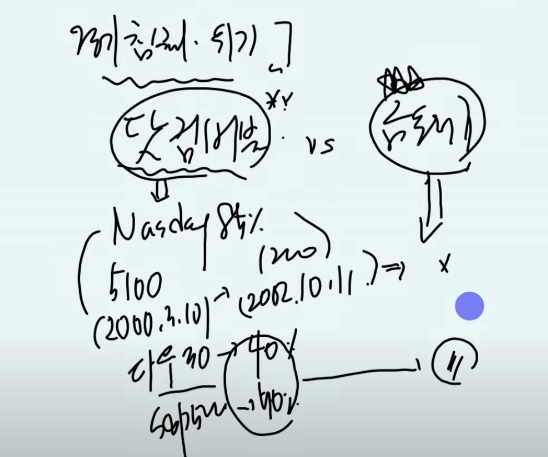 경기침체. 위기
닷컴버블 vs 금융위기
Nasdaq 85%
5100 (1200)
(2000.3.10) → (2002.10.11.) ⇒ x
다우30 → 40%
S&P500 → 50%